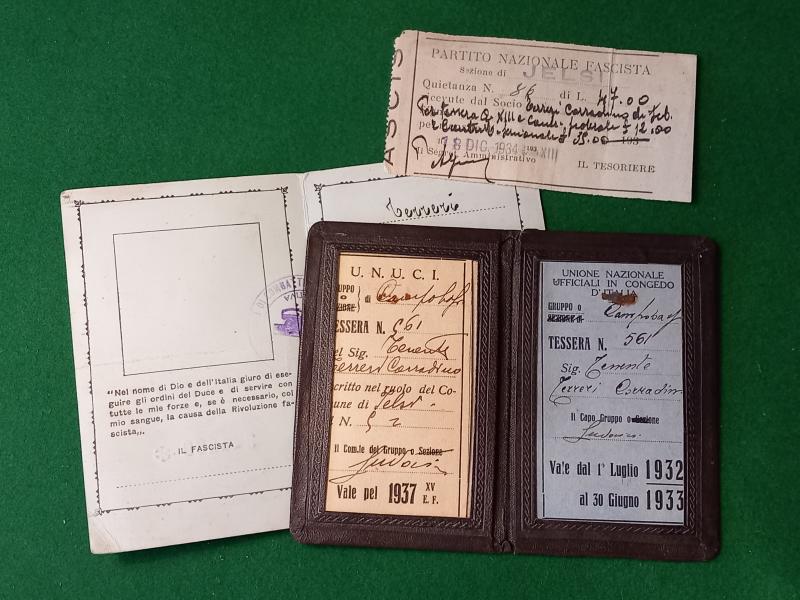 PARTITO NAZIONALE FASCISTA
Sezione di JELSI
Quietanza N. 86 di L. 47.00
ricevute dal Socio Terreri Corradino di Feb.
per tessera a. XIII e Contr. federale £ 12.00
e Contributo £ 35.00 193
18 DIC. 1934 XIII
Il Segret. Amministrativo
IL TESORIERE
ASCIS
Terreri
VALI
"Nel nome di Dio e dell'Italia giuro di ese-
guire gli ordini del Duce e di servire con
tutte le mie forze e, se è necessario, col
mio sangue, la causa della Rivoluzione fa-
scista„.
IL FASCISTA
U. N. U. C. I.
GRUPPO
o di Campobasso
SEZIONE
TESSERA N. 561
del Sig. Tenente
Terreri Corradino
scritto nel ruolo del Co-
mune di Jelsi
l N. 52
Il Com.te del Gruppo o Sezione
Vale pel 1937 XV
E. F.
UNIONE NAZIONALE
UFFICIALI IN CONGEDO
D'ITALIA
GRUPPO o
SEZIONE di Campobasso
TESSERA N. 561
Sig. Tenente
Terreri Corradin
Il Capo Gruppo o Sezione
Vale dal 1° Luglio 1932
al 30 Giugno 1933